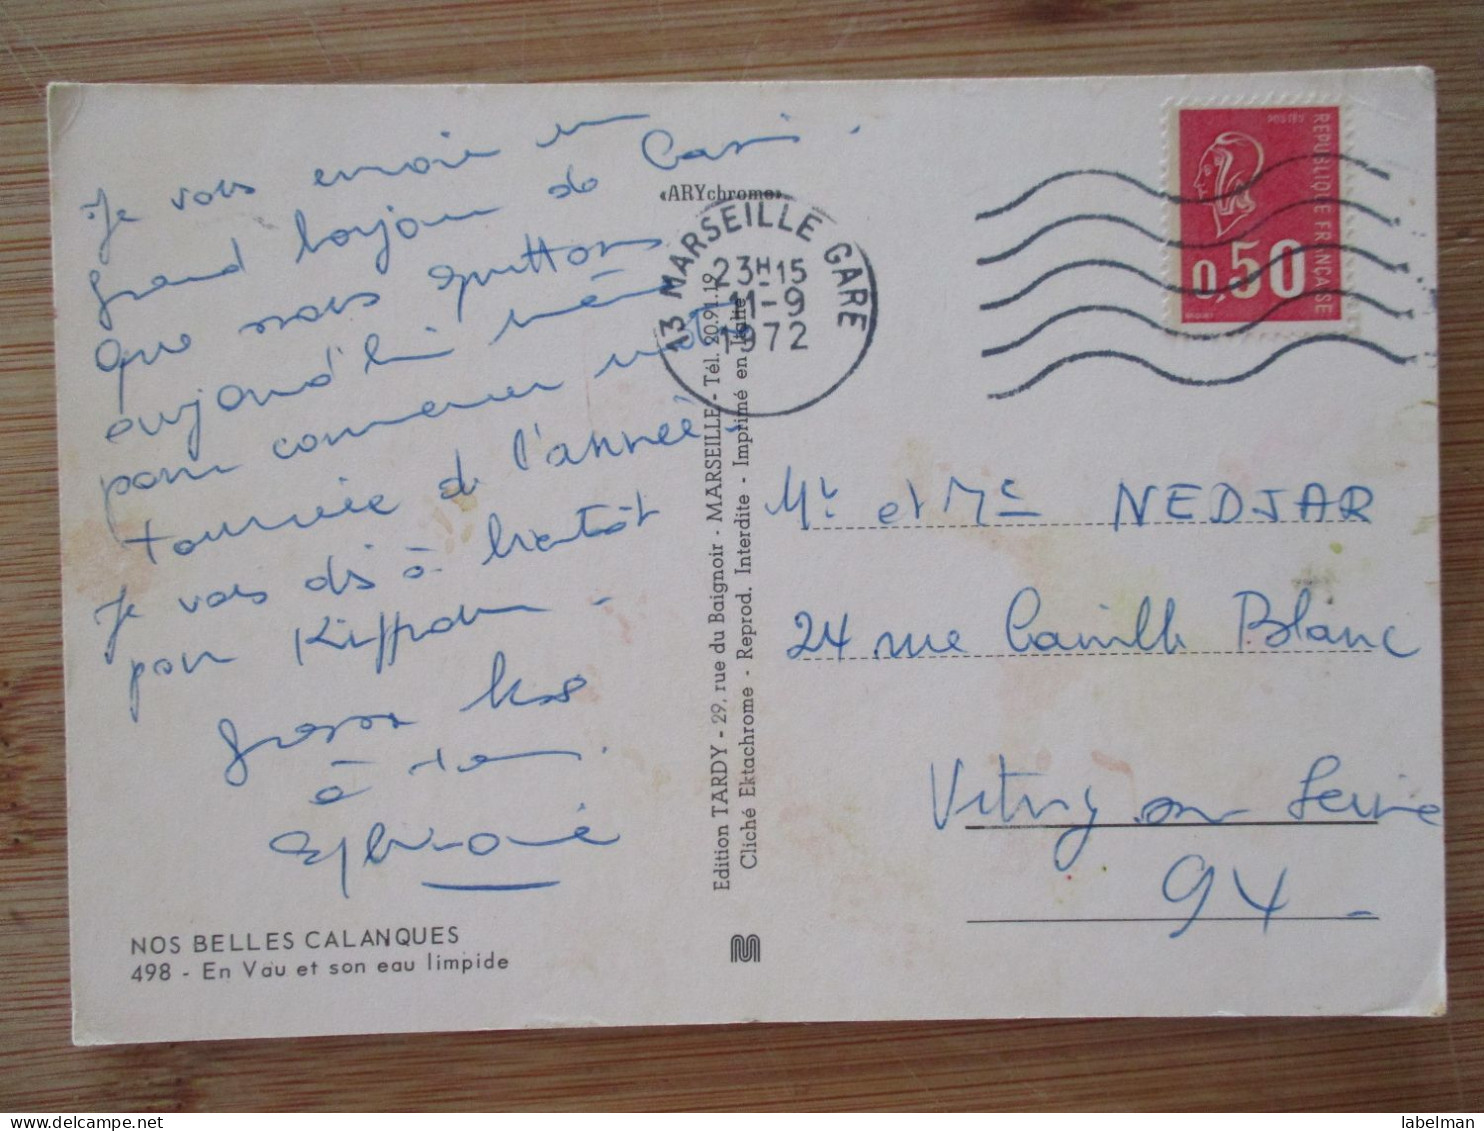 Je vous envoie un
grand bonjour de Cassis.
que nous quittons
aujourd'hui même
pour commencer notre
tournée de l'année.
Je vous dis à bientôt
pour Kippour -
grosses bises
à tous.
Sylviane
NOS BELLES CALANQUES
498 - En Vau et son eau limpide
«ARYchrome»
Edition TARDY - 29, rue du Baignoir - MARSEILLE - Tél. 20.91.19
Cliché Ektachrome - Reprod. Interdite - Imprimé en
13 MARSEILLE GARE
23H15
11-9
1972
REPUBLIQUE FRANÇAISE
POSTES
0,50
Mr et Me NEDJAR
24 rue Camille Blanc
Vitry sur Seine
94 -
labelman